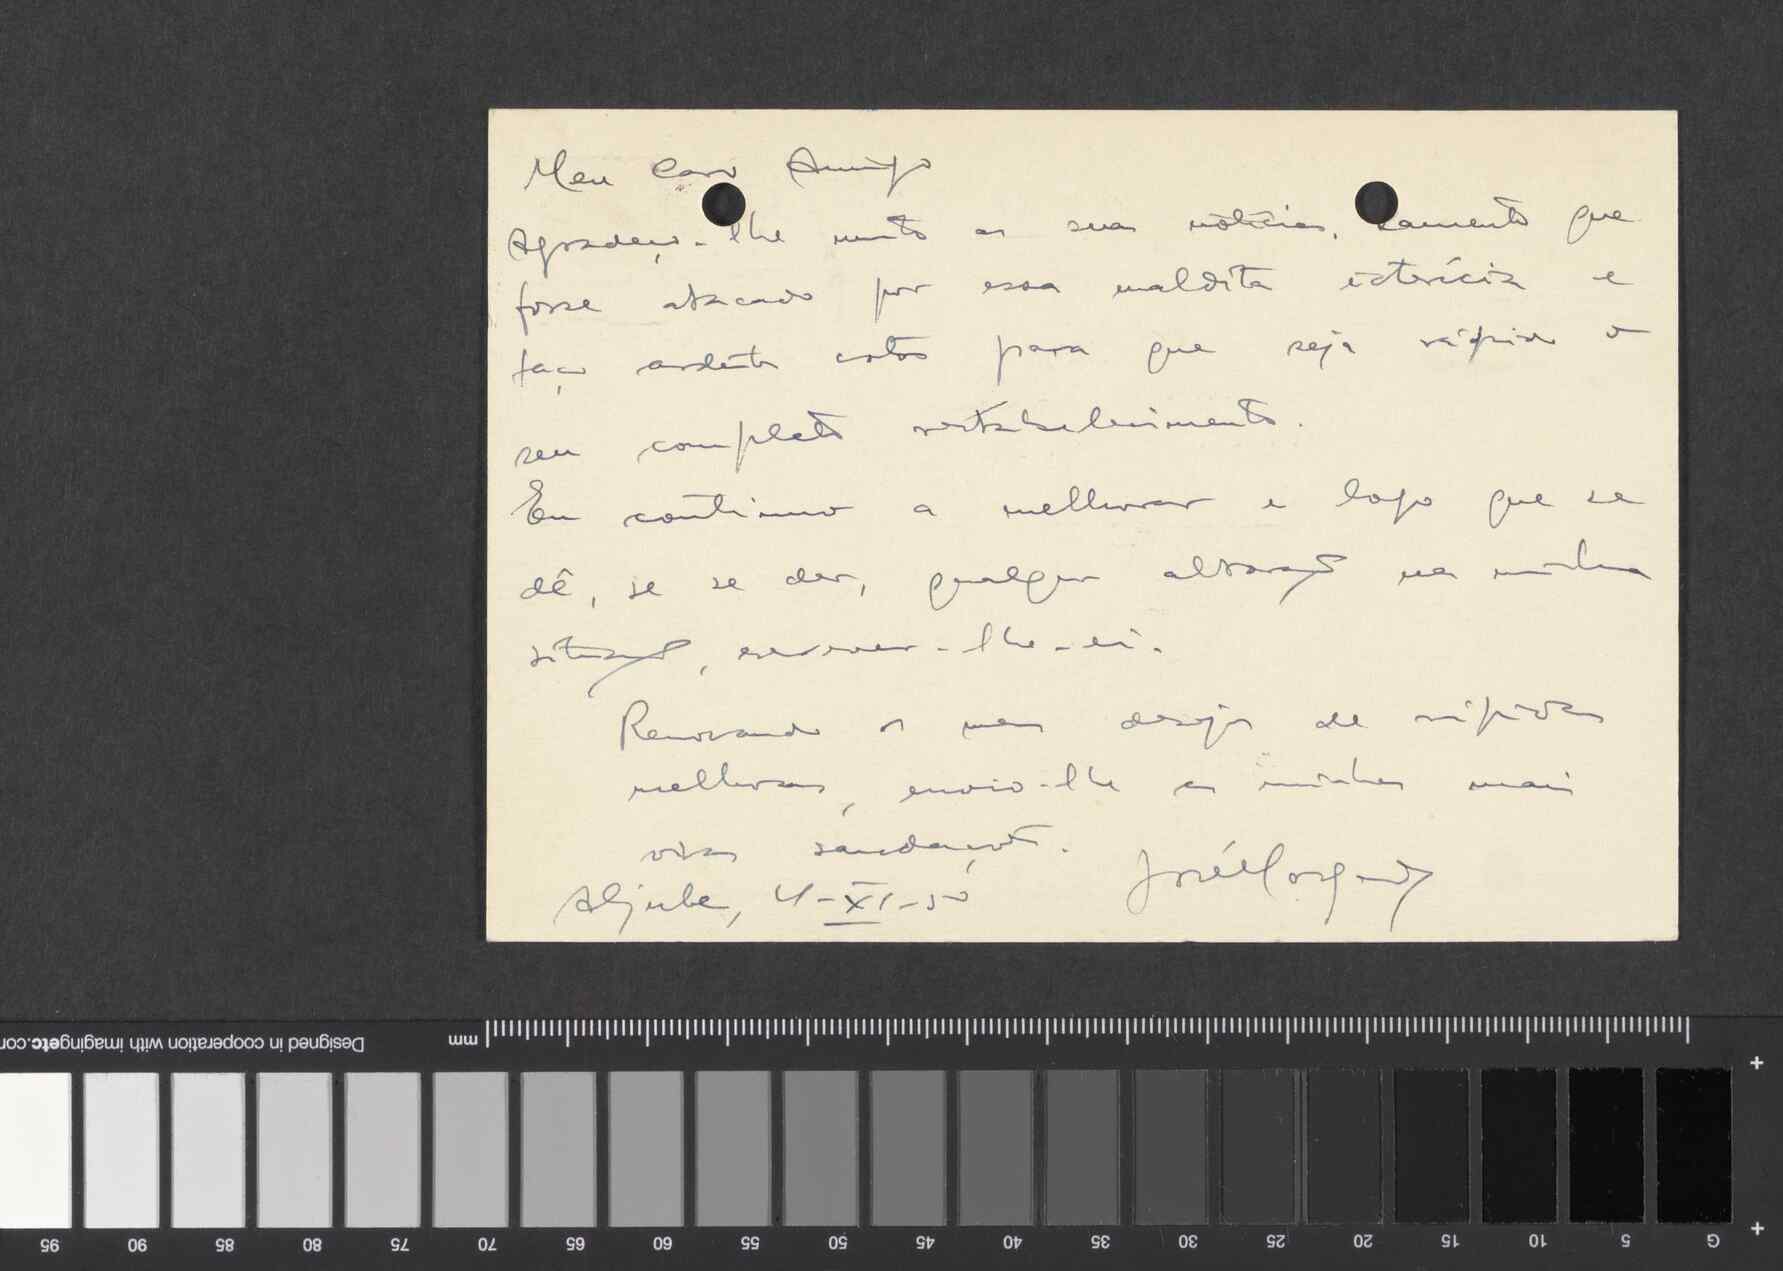 Meu Caro Amigo
Agradeço-lhe muito as suas notícias. Lamento que
fosse atacado por essa maldita icterícia e
faço ardentes votos para que seja rápido o
seu completo restabelecimento.
Eu continuo a melhorar e logo que se
dê, se se der, qualquer alteração na minha
situação, escrever-lhe-ei.
Renovando os meus desejos de rápidas
melhoras, envio-lhe as minhas mais
vivas saudações.
Aljube, 4-XI-50
José Morgado
Designed in cooperation with imagingetc.com
mm
95 90 85 80 75 70 65 60 55 50 45 40 35 30 25 20 15 10 5 G